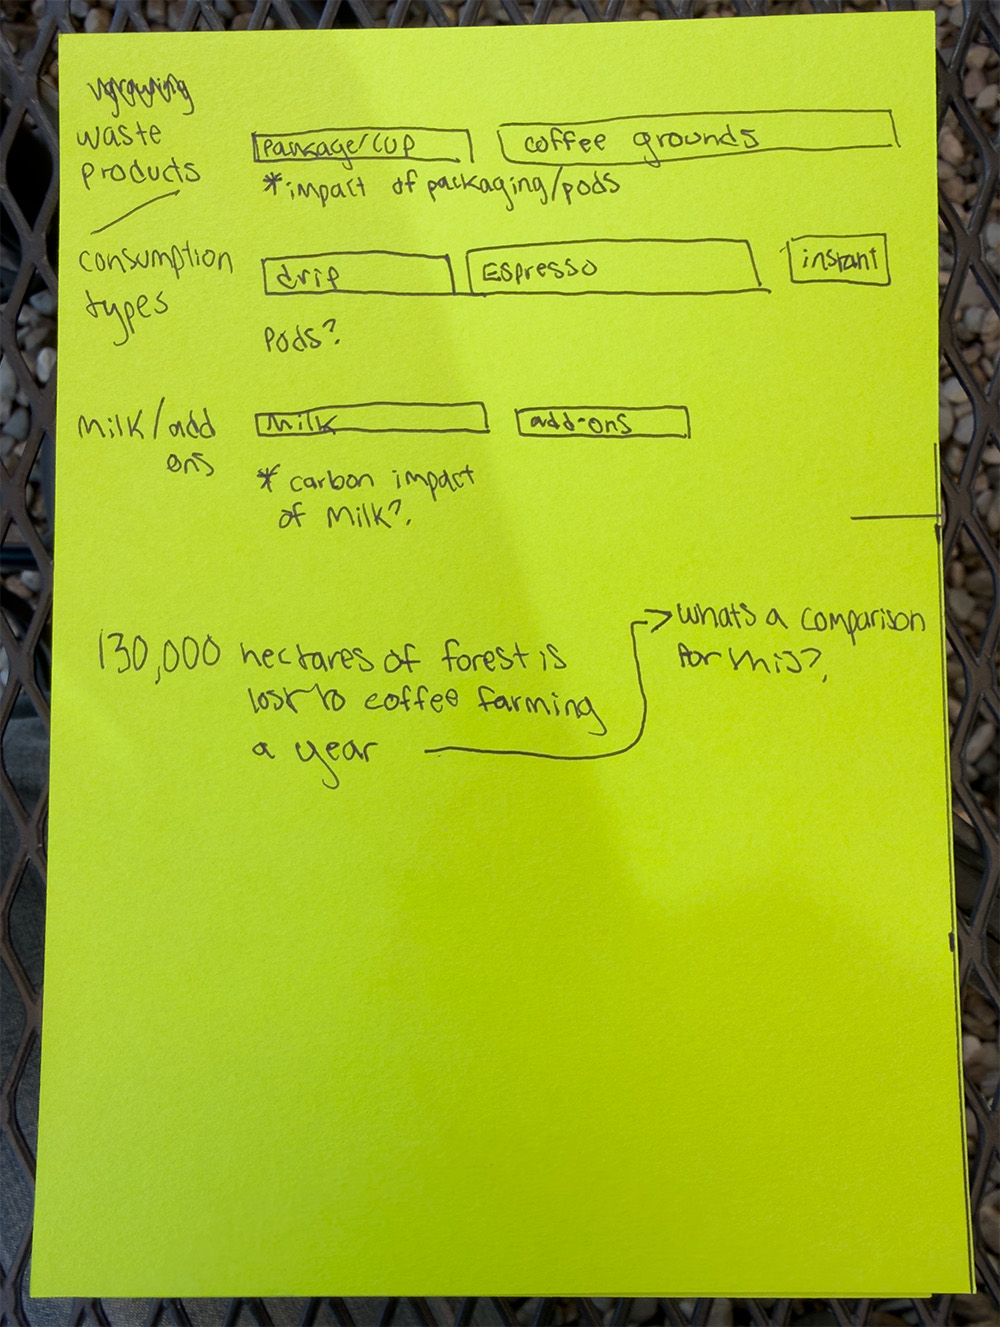 waste
products
package/cup
coffee grounds
*impact of packaging/pods
consumption
types
drip
Espresso
instant
Pods?
Milk/add
ons
Milk
add-ons
* carbon impact
of Milk?
130,000 hectares of forest is
lost to coffee farming
a year
whats a comparison
for this?